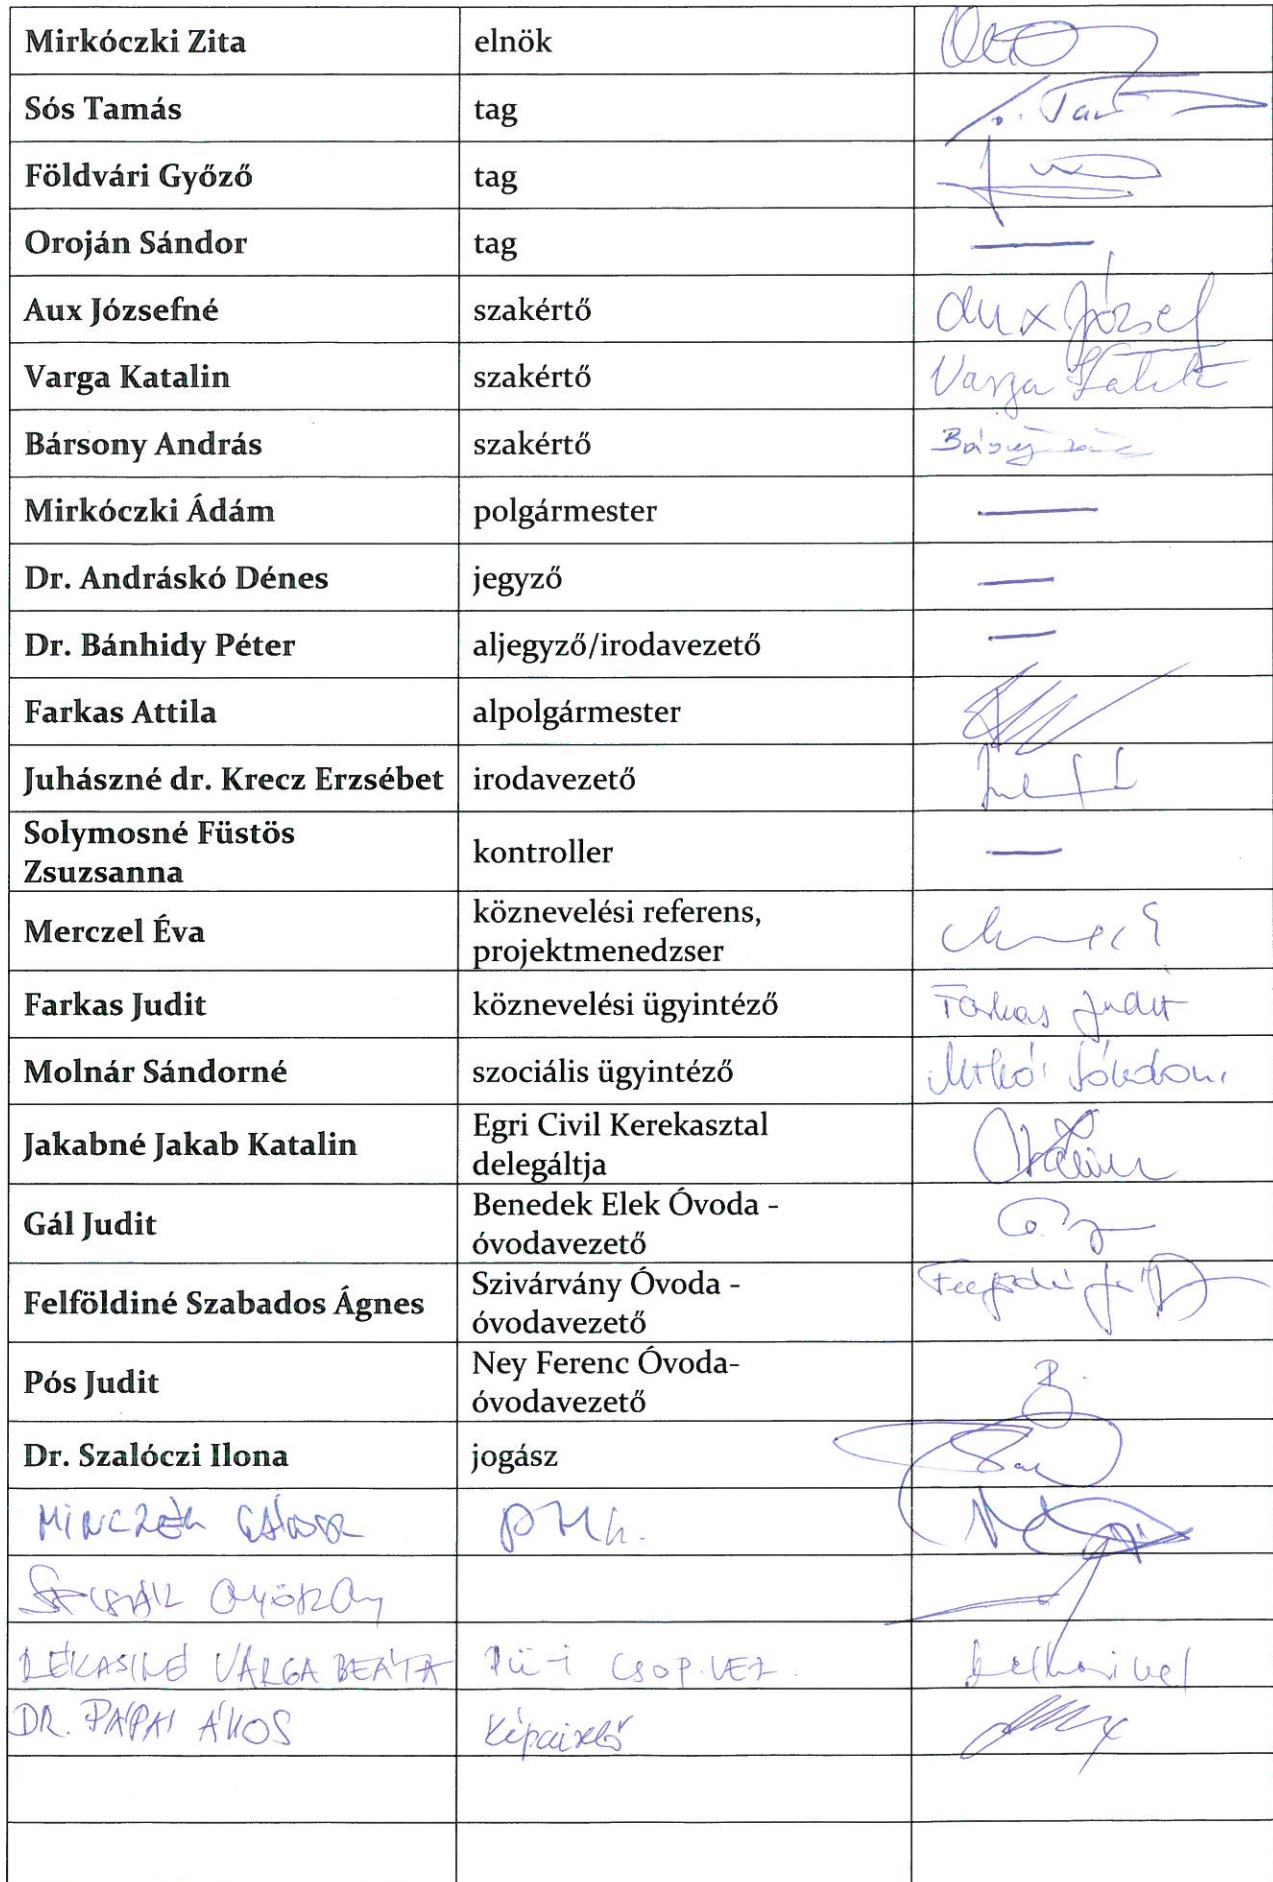 Mirkóczki Zita elnök
Sós Tamás tag
Földvári Győző tag
Oroján Sándor tag —
Aux Józsefné szakértő Aux József
Varga Katalin szakértő Varga
Bársony András szakértő
Mirkóczki Ádám polgármester —
Dr. Andráskó Dénes jegyző —
Dr. Bánhidy Péter aljegyző/irodavezető —
Farkas Attila alpolgármester
Juhászné dr. Krecz Erzsébet irodavezető
Solymosné Füstös
Zsuzsanna kontroller —
Merczel Éva köznevelési referens,
projektmenedzser
Farkas Judit köznevelési ügyintéző Farkas Judit
Molnár Sándorné szociális ügyintéző
Jakabné Jakab Katalin Egri Civil Kerekasztal
delegáltja
Gál Judit Benedek Elek Óvoda -
óvodavezető
Felföldiné Szabados Ágnes Szivárvány Óvoda -
óvodavezető
Pós Judit Ney Ferenc Óvoda-
óvodavezető
Dr. Szalóczi Ilona jogász
MINCZÉR GÁBOR
RÉKASINÉ VARGA BEÁTA CSOP.VEZ.
DR. PÁPAI ÁKOS képviselő